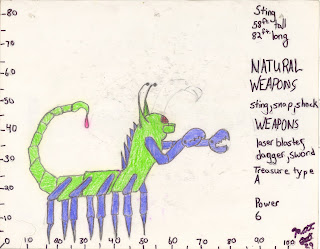 Sting
58ft tall
82ft long
NATURAL
WEAPONS
sting, snap, shock
WEAPONS
laser blaster,
dagger, sword
Treasure type
A
Power
6
80
70
60
50
40
30
20
10
0 10 20 30 40 50 60 70 80 90 100